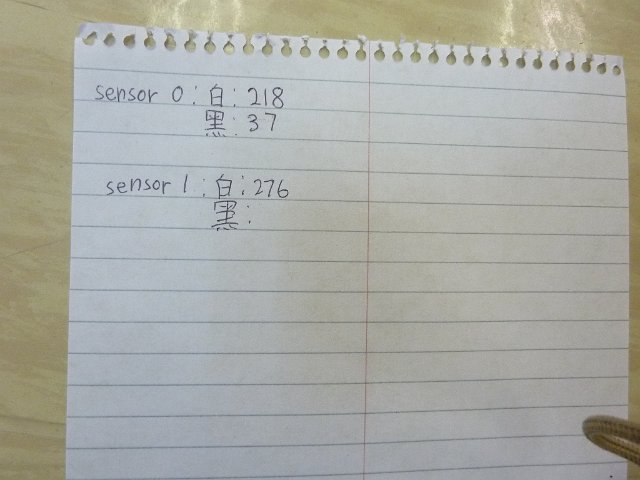 sensor 0:白:218
黑:37
sensor 1:白:276
黑: